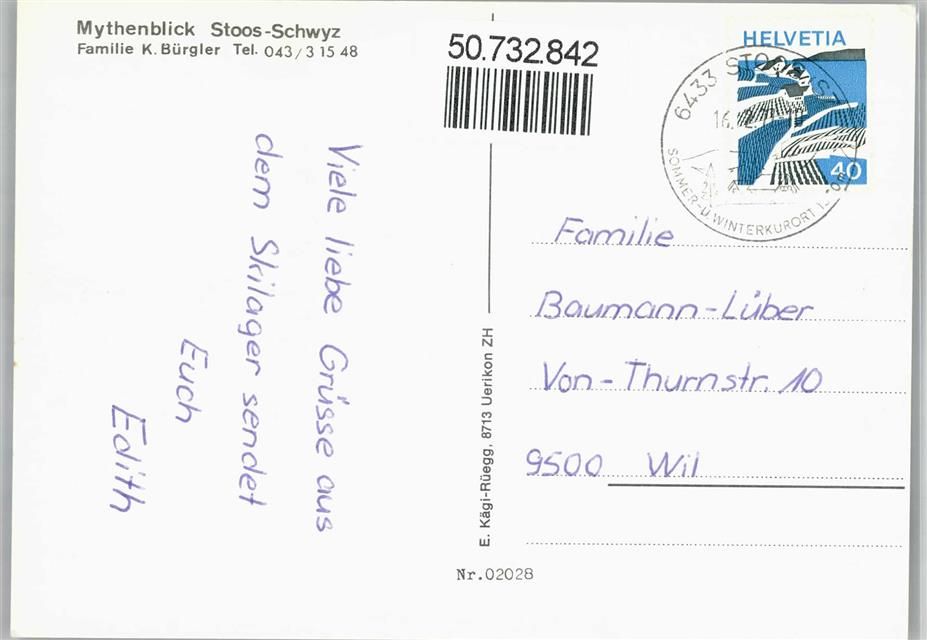 Mythenblick Stoos-Schwyz
Familie K. Bürgler Tel. 043/3 15 48
50.732.842
HELVETIA
40
6433 STOOS
16.
SOMMER-U. WINTERKURORT
Viele liebe Grüsse aus
dem Skilager sendet
Euch
Edith
E. Kägi-Rüegg, 8713 Uerikon ZH
Familie
Baumann-Lüber
Von-Thurnstr. 10
9500 Wil
Nr.02028